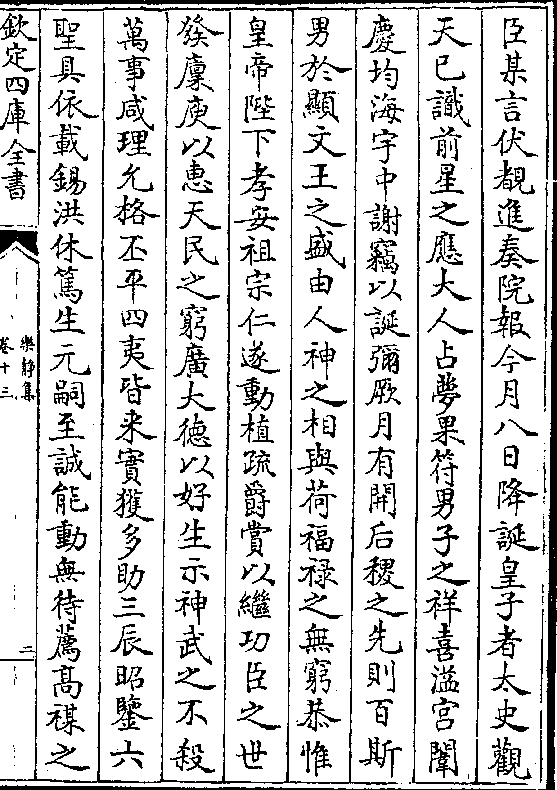 臣某言伏覩進奏院報今月八日降誕皇子者太史觀
天已識前星之應大人占夢果符男子之祥喜溢宮闈
慶均海宇中謝竊以誕彌厥月有開后稷之先則百斯
男於顯文王之盛由人神之相與荷福祿之無窮恭惟
皇帝陛下孝安祖宗仁遂動植疏爵賞以繼功臣之世
發廩庾以惠天民之窮廣大德以好生示神武之不殺
萬事咸理允格丕平四夷皆来實獲多助三辰昭鑒六
聖具依載錫洪休篤生元嗣至誠能動無待薦高禖之
欽定四庫全書
樂靜集
卷十三
二